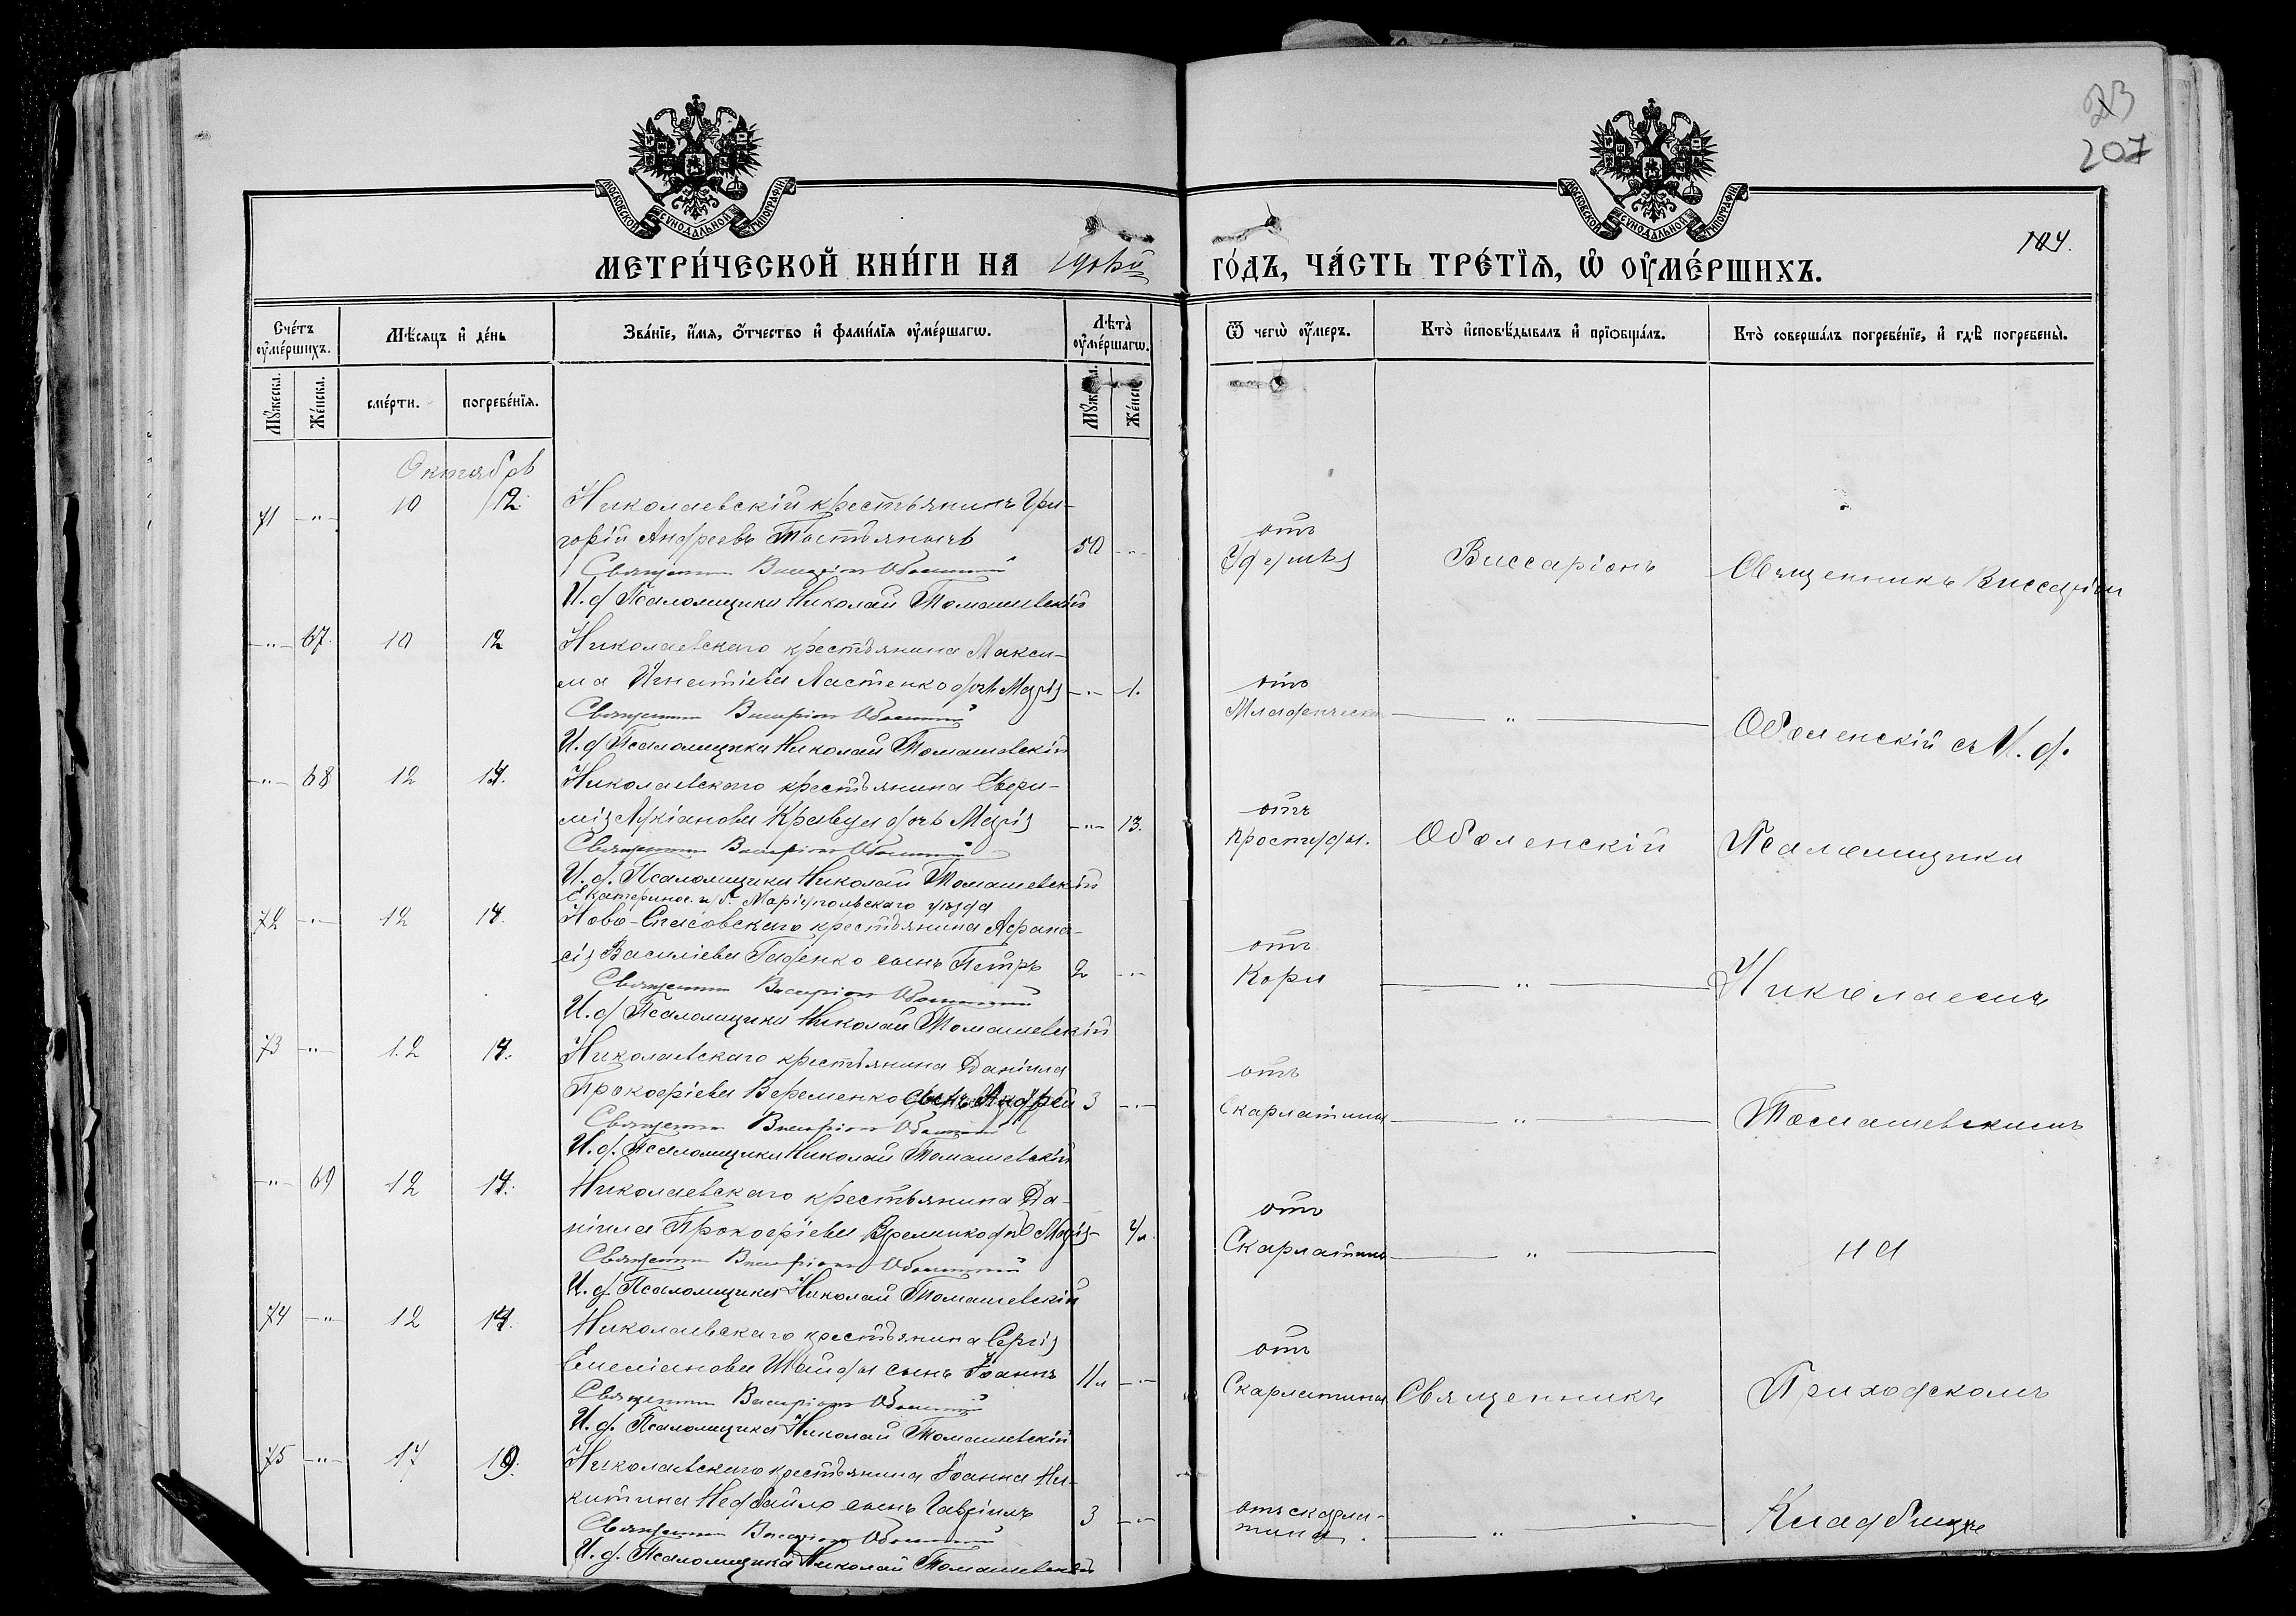 207
104.
МОСКОВСКОЙ СѴНОДАЛЬНОЙ ТИПОГРАФІИ
МОСКОВСКОЙ СѴНОДАЛЬНОЙ ТИПОГРАФІИ
МЕТРИ́ЧЕСКОЙ КНИ́ГИ НА
ГО́ДЪ, ЧА́СТЬ ТРЕ́ТІѦ, Ѡ҆ ОУ҆МЕ́РШИХЪ.
Сче́тъ оу҆ме́ршихъ.
Мѣ́сѧцъ и҆ де́нь
Зва́нїе, и҆́мѧ, ѻ҆́тчество и҆ фами́лїѧ оу҆ме́ршагѡ.
Лѣ̑та̀ оу҆ме́ршагѡ.
Ѿ чегѡ̀ оу҆́меръ.
Кто̀ и҆сповѣ́дывалъ и҆ прїѻбща́лъ.
Кто̀ соверша́лъ погребе́нїе, и҆ гдѣ̀ погребены̀.
Мꙋ́жеска.
Же́нска.
сме́рти.
погребе́нїѧ.
Мꙋ́жеска.
Же́нска.
Октябрь
71 -"- 10 12 Николаевскій крестьянинъ Гри-
горій Андреевъ 50 -"-
Священникъ Виссаріонъ Оболенскій
И. д. Псаломщика Николай Томашевскій
отъ
Виссаріонъ
Священникъ Виссаріонъ
-"- 67 10 12 Николаевскаго крестьянина Макси-
ма Игнатіева Ластенко дочь Марія -"- 1.
Священникъ Виссаріонъ Оболенскій
И. д. Псаломщика Николай Томашевскій
отъ
"
Оболенскій съ И. д.
-"- 68 12 14. Николаевскаго крестьянина
Кравца дочь Марія -"- 13.
Священникъ Виссаріонъ Оболенскій
И. д. Псаломщика Николай Томашевскій
отъ
простуды.
Оболенскій
Псаломщика
Екатерин. г. Маріупольскаго уѣзда
72 -"- 12 14. Ново-Спасовскаго крестьянина Афана-
сія Василіева Гаденко сынъ Петръ 2 -"-
Священникъ Виссаріонъ Оболенскій
И. д. Псаломщика Николай Томашевскій
отъ
Кори
"
Николаемъ
73 -"- 12 14. Николаевскаго крестьянина Даніила
Прокофіева Веременко сынъ Андрей 3 -"-
Священникъ Виссаріонъ Оболенскій
И. д. Псаломщика Николай Томашевскій
отъ
Скарлатины
"
Томашевскимъ
-"- 69 12 14. Николаевскаго крестьянина Да-
ніила Прокофіева дочь Марія
Священникъ Виссаріонъ Оболенскій
И. д. Псаломщика Николай Томашевскій
отъ
Скарлатины
"
на
74 -"- 12 14. Николаевскаго крестьянина Сергія
Емеліанова Шайды сынъ Іоаннъ -"-
Священникъ Виссаріонъ Оболенскій
И. д. Псаломщика Николай Томашевскій
отъ
Скарлатины
Священникъ
Приходскомъ
75 -"- 17 19. Николаевскаго крестьянина Іоанна Ни-
китина Недбайло сынъ Гавріилъ 3 -"-
Священникъ Виссаріонъ Оболенскій
И. д. Псаломщика Николай Томашевскій
отъ скарла-
тины.
"
Кладбищѣ